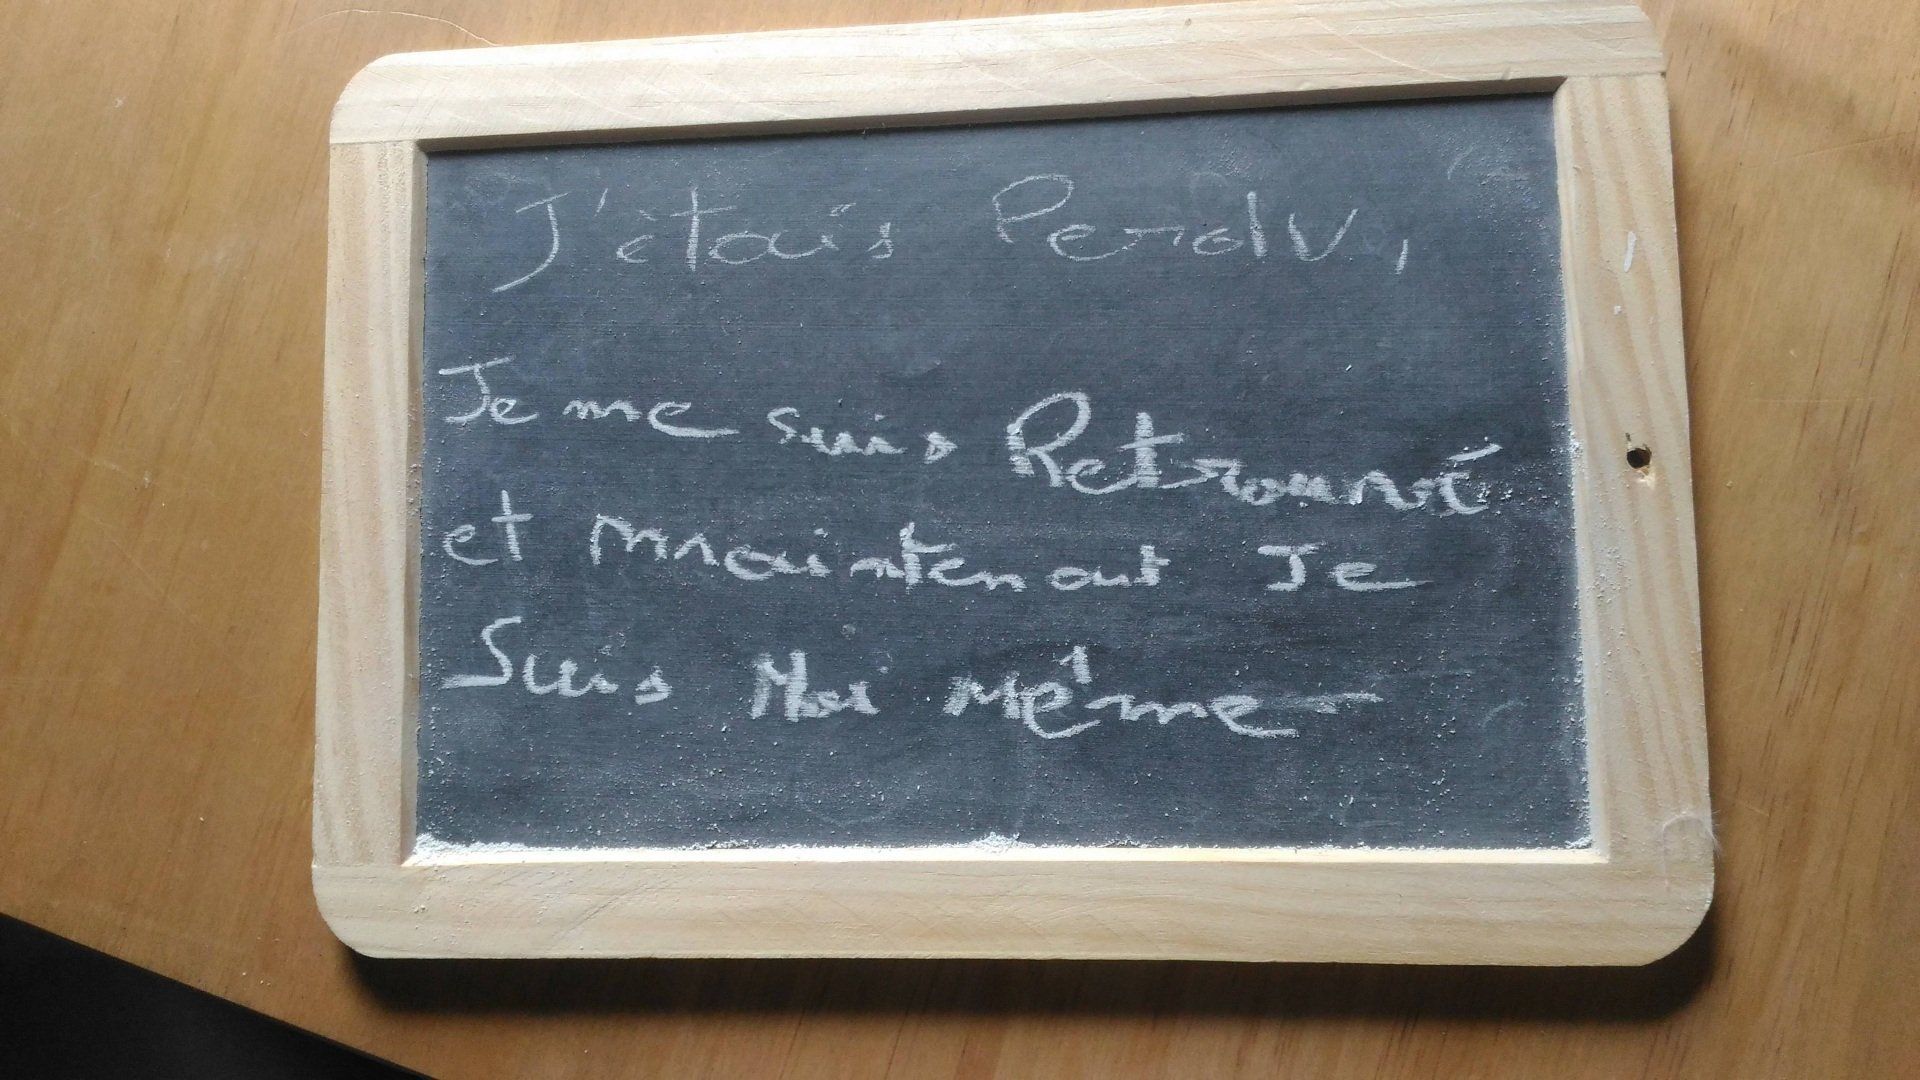 J'étais Perdu,
Je me suis Retrouvé
et Maintenant Je
Suis Moi Même